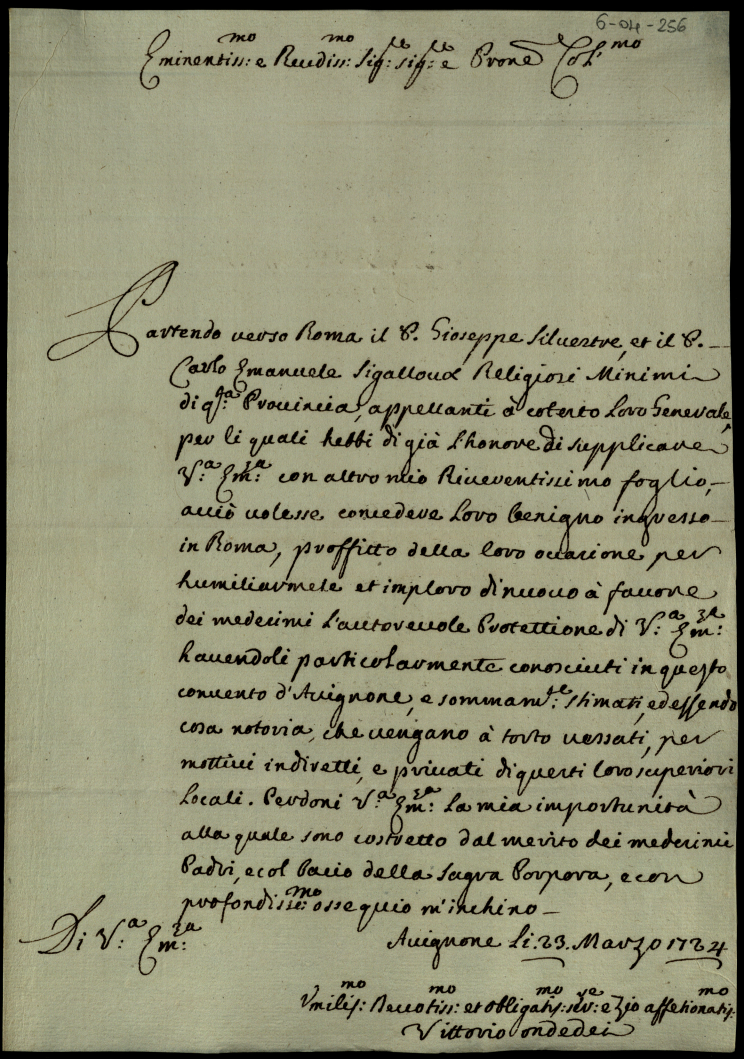 6-04-256
Eminentiss:mo e Reudiss:mo Sig:re sig:re e Prone Col:mo
Partendo verso Roma il P. Gioseppe Silvestre, et il P.
Carlo Emanuele Sigalloud Religiosi Minimi
di q.sta Prouincia, appellanti à cotesto Loro Generale,
per li quali hebbi di già L'honore di supplicare
V.a Em:za con altro mio Riuerentissimo foglio,
acciò uolesse concedere Loro benigno ingresso
in Roma, proffitto della loro occasione per
humiliarmele et imploro di nuouo à fauore
dei medesimi L'autoreuole Protettione di V.a Em:za
hauendoli particolarmente conosciuti in questo
conuento d'Auignone, e sommam:te stimati, ed essendo
cosa notoria, che uengano à torto uessati, per
mottiui indiretti, e priuati di questi loro superiori
Locali. Perdoni V.a Em:za La mia importunità
alla quale sono costretto dal merito dei medesimi
Padri, e col bacio della Sagra Porpora, e con
profondiss:mo ossequio m'inchino
Di V.a Em:za
Auignone Li. 23. Marzo 1724
Vmilis:mo Deuotiss:mo et obligatis:mo ser:re e Zio affetionatis:mo
Vittorio ondedei